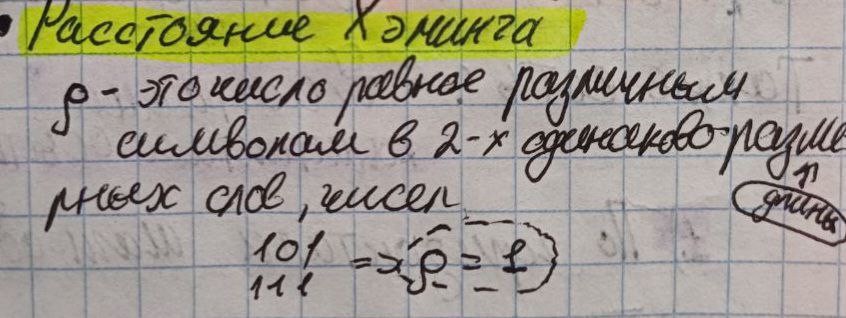 • Расстояние Хэминга
ρ - это число равное различным
символам в 2-х одинаково-разме
рных слов, чисел
длины
101
111 => ρ = 1